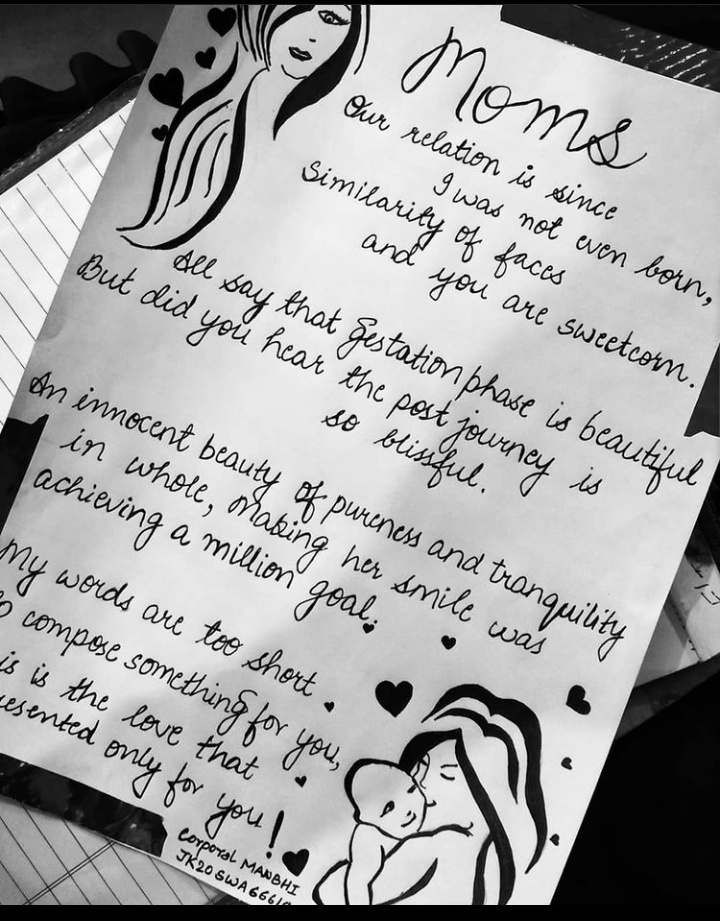 Moms
Our relation is since
I was not even born,
Similarity of faces
and you are sweetcorn.
All say that gestation phase is beautiful
But did you hear the post journey is
so blissful.
An innocent beauty of pureness and tranquility
in whole, making her smile was
achieving a million goal.
My words are too short
to compose something for you,
is is the love that
resented only for you!
Corporal MANBHI
JK20SWA6661